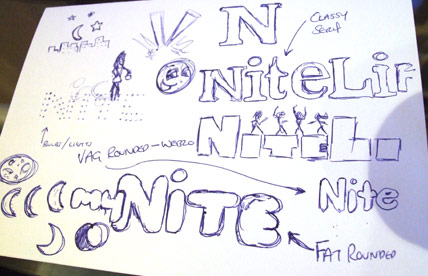 N
CLASSY
SERIF
NiteLif
NITE
BULBS/LIGHTS
VAG ROUNDED - WEBZO
NITELI
my NiTE
Nite
FAT ROUNDED